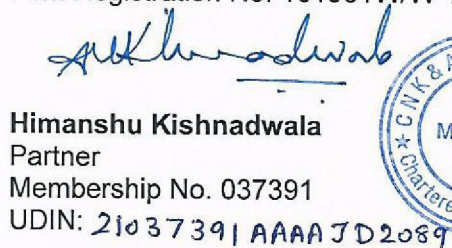 Himanshu Kishnadwala
Partner
Membership No. 037391
UDIN: 21037391AAAAJD2089
CNK & A
M
Chartere